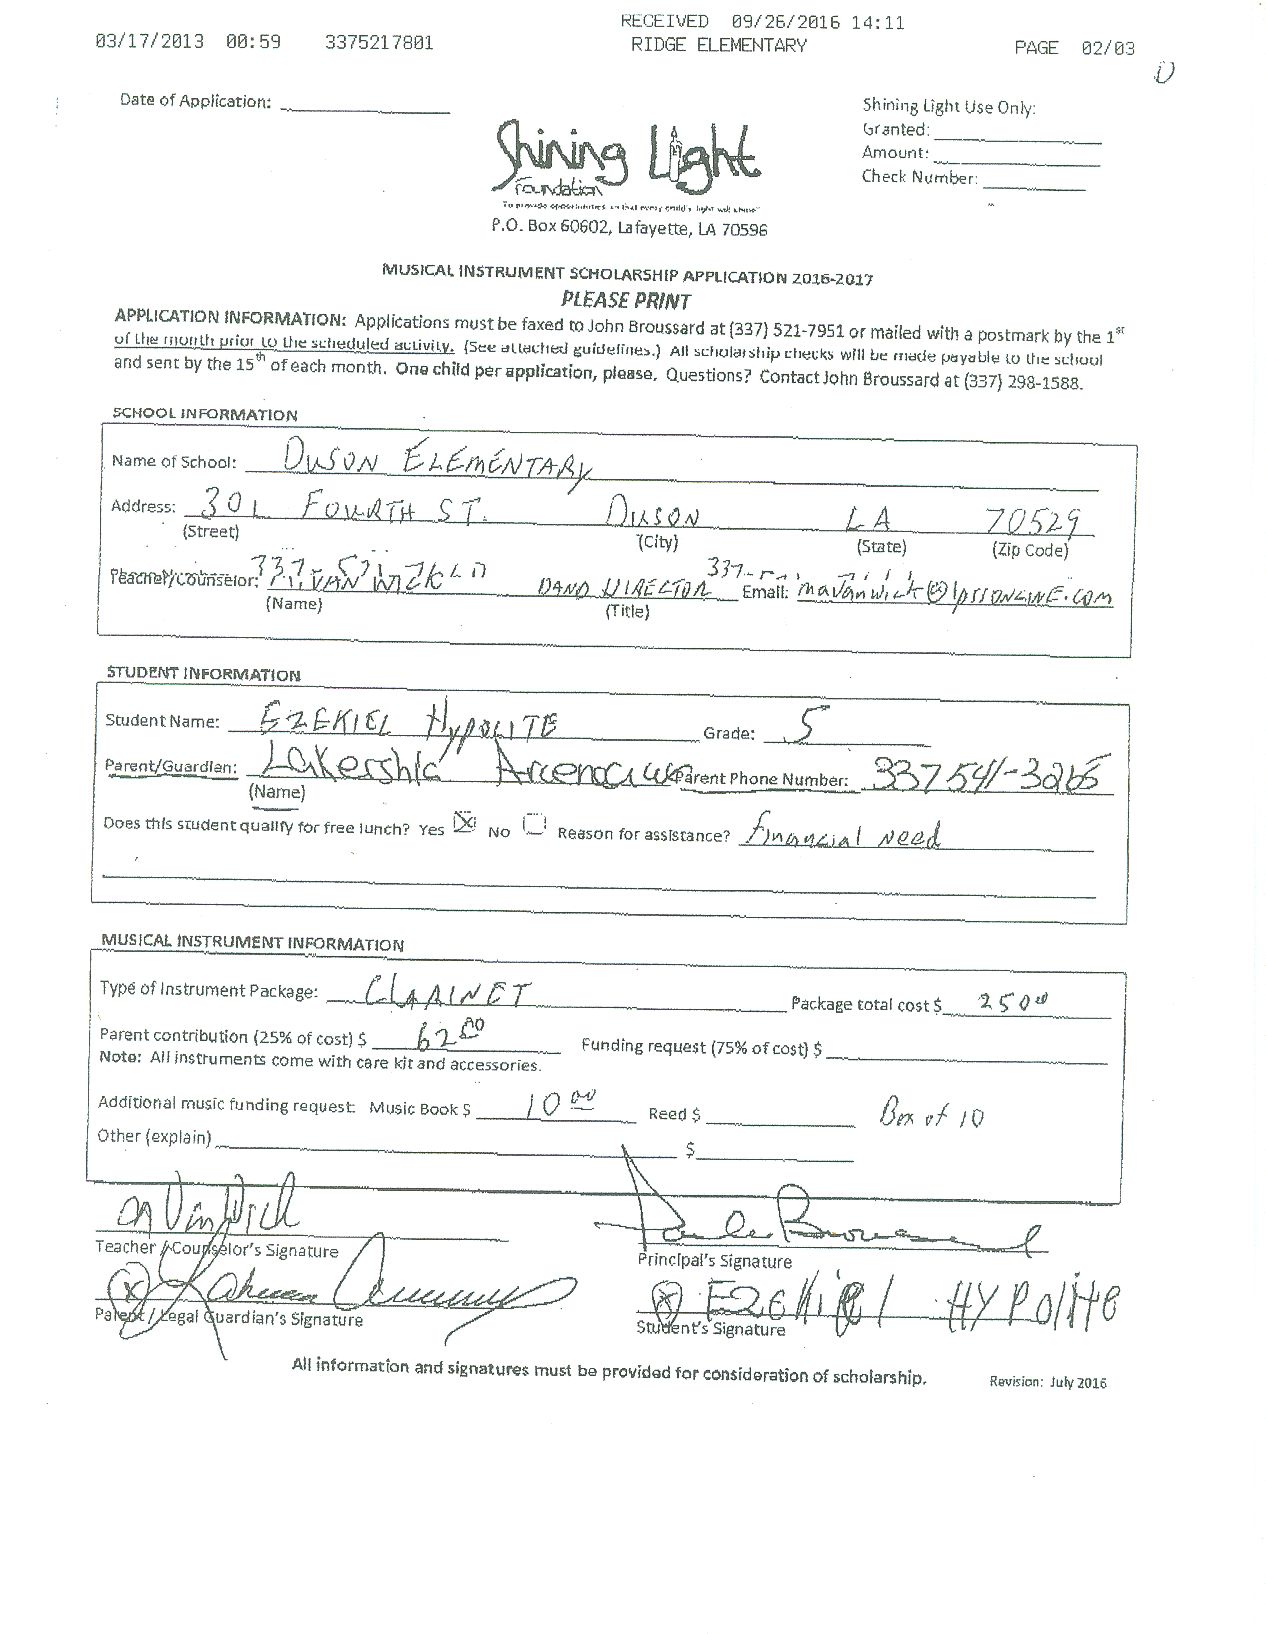 RECEIVED 09/26/2016 14:11
03/17/2013 00:59 3375217801 RIDGE ELEMENTARY PAGE 02/03
Date of Application:
Shining Light Use Only:
Granted:
Amount:
Check Number:
Shining Light
Foundation
"To provide opportunities so that every child's light will shine"
P.O. Box 60602, Lafayette, LA 70596
MUSICAL INSTRUMENT SCHOLARSHIP APPLICATION 2016-2017
PLEASE PRINT
APPLICATION INFORMATION: Applications must be faxed to John Broussard at (337) 521-7951 or mailed with a postmark by the 1st
of the month prior to the scheduled activity. (See attached guidelines.) All scholarship checks will be made payable to the school
and sent by the 15th of each month. One child per application, please. Questions? Contact John Broussard at (337) 298-1588.
SCHOOL INFORMATION
Name of School: DUSON ELEMENTARY
Address: 301 FOURTH ST. DUSON LA 70529
(Street) (City) (State) (Zip Code)
/Counselor: VAN WICK BAND DIRECTOR Email: mavanwick@lpssonline.com
(Name) (Title)
STUDENT INFORMATION
Student Name: EZEKIEL HYPOLITE Grade: 5
Parent/Guardian: Lakershia Arceneaux Parent Phone Number: 337 541-3265
(Name)
Does this student qualify for free lunch? Yes ☒ No ☐ Reason for assistance? Financial Need
MUSICAL INSTRUMENT INFORMATION
Type of Instrument Package: CLARINET Package total cost $ 250 00
Parent contribution (25% of cost) $ 62 00 Funding request (75% of cost) $
Note: All instruments come with care kit and accessories.
Additional music funding request: Music Book $ 10 00 Reed $ Box of 10
Other (explain) $
Teacher / Counselor's Signature
Principal's Signature
EZeKiel HYPOlite
Parent / Legal Guardian's Signature
Student's Signature
All information and signatures must be provided for consideration of scholarship.
Revision: July 2016